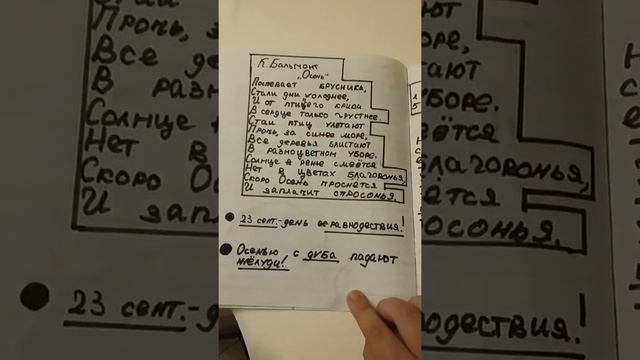 К. Бальмонт
"Осень"
Поспевает брусника,
Стали дни холоднее,
И от птичьего крика
В сердце только грустнее.
Стаи птиц улетают
Прочь, за синее море.
Все деревья блистают
В разноцветном уборе.
Солнце реже смеётся
Нет в цветах благовонья,
Скоро Осень проснется
И заплачит спросонья.
23 сент.-день осравнодествия!
Осенью с дуба падают
жёлуди!